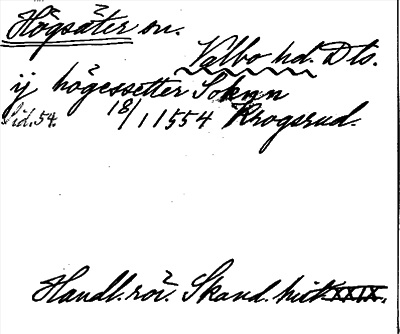 Högsäter sn.
Valbo hd. Dls.
ij högessetter Soknn
Sid. 54. 18/1 1554 Krogsrud.
Handl. rör. Skand. hist. XXIX.